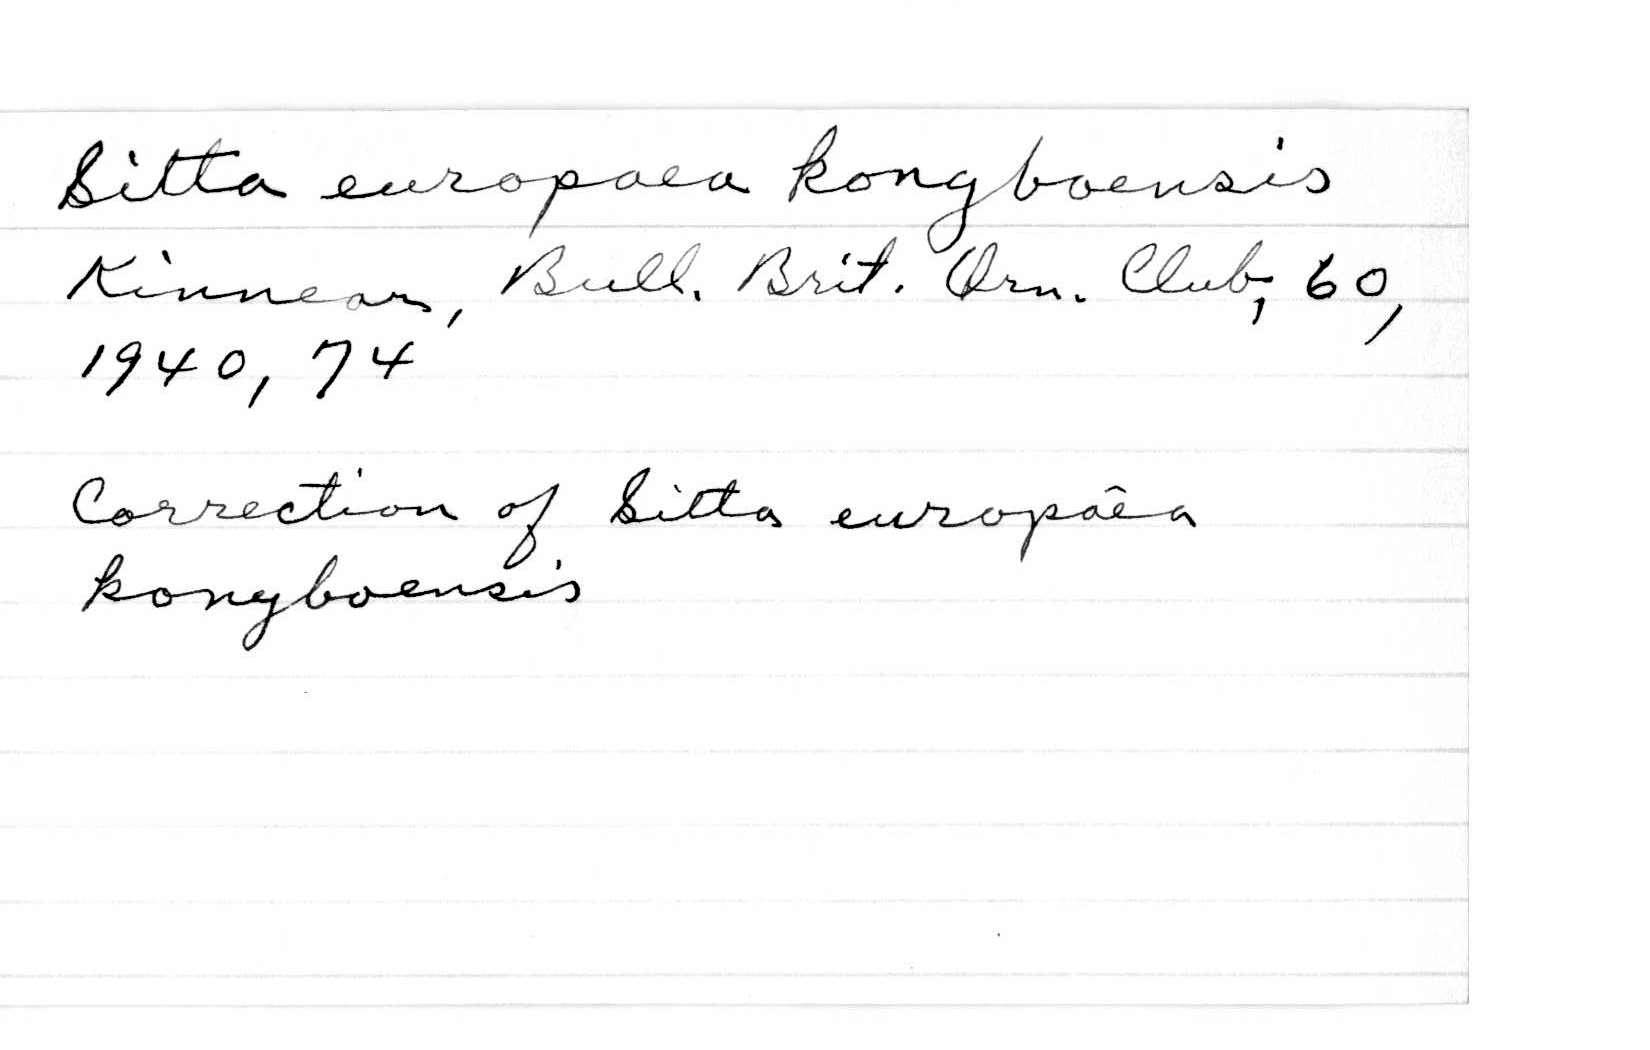 Sitta europaea kongboensis
Kinnear, Bull. Brit. Orn. Club, 60,
1940, 74
Correction of Sitta europaêa
kongboensis